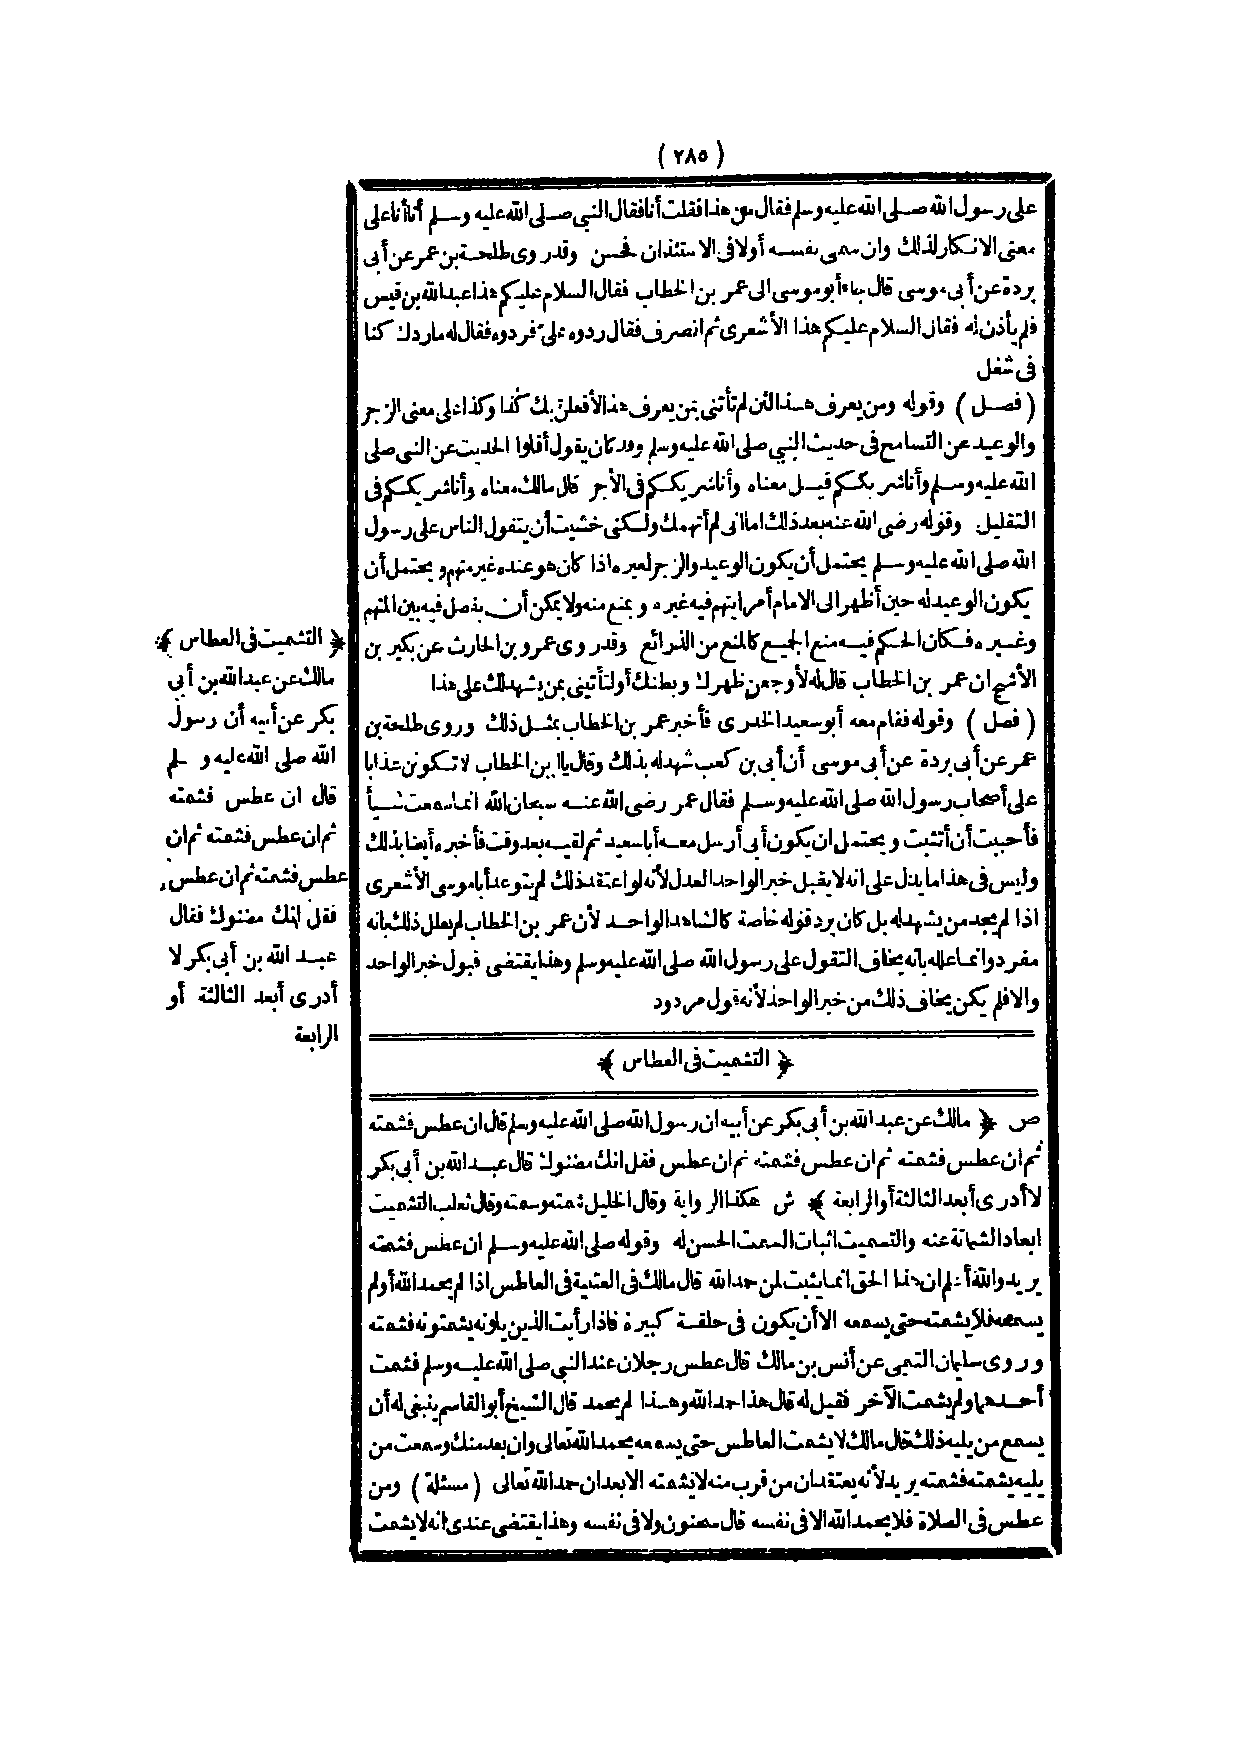 ( ٢٨٥ )
على رسول الله صلى الله عليه وسلم فقال من هذا فقلت أنا فقال النبي صلى الله عليه وسلم أنا أنا على
معنى الانكار لذلك وان سمى نفسه أولا فى الاستئذان فحسن وقد روى طلحة بن عمر عن أبى
بردة عن أبى موسى قال جاء أبو موسى الى عمر بن الخطاب فقال السلام عليكم هذا عبد الله بن قيس
فلم يأذن له فقال السلام عليكم هذا الأشعرى ثم انصرف فقال ردوه على فردوه فقال له ماردك كنا
فى شغل
( فصل ) وقوله ومن يعرف هذا لئن لم تأتنى بمن يعرف هذا لأفعلن بك كذا وكذا على معنى الزجر
والوعيد عن التسامع فى حديث النبي صلى الله عليه وسلم وقد كان يقول أقلوا الحديث عن النبى صلى
الله عليه وسلم وأنا شريككم قيل معناه وأنا شريككم فى الأجر قال مالك معناه وأنا شريككم فى
التقليل وقوله رضى الله عنه بعد ذلك اما انى لم أتهمك ولكنى خشيت أن يتقول الناس على رسول
الله صلى الله عليه وسلم يحتمل أن يكون الوعيد والزجر لغيره اذا كان هو عنده غير متهم ويحتمل أن
يكون الوعيد له حين أظهر الى الامام أمرا يتهم فيه غيره ويمنع منه ولا يمكن أن يفصل فيه بين المتهم
وغيره فكان الحكم فيه منع الجميع كالمنع من الذرائع وقد روى عمرو بن الحارث عن بكير بن
الأشج ان عمر بن الخطاب قال له لأوجعن ظهرك وبطنك أو لتأتينى بمن يشهد لك على هذا
( فصل ) وقوله فقام معه أبو سعيد الخدرى فأخبر عمر بن الخطاب بمثل ذلك وروى طلحة بن
عمر عن أبى بردة عن أبى موسى أن أبى بن كعب شهد له بذلك وقال يا ابن الخطاب لا تكونن عذابا
على أصحاب رسول الله صلى الله عليه وسلم فقال عمر رضى الله عنه سبحان الله انما سمعت شيأ
فأحببت أن أتثبت ويحتمل ان يكون أبى أرسل معه أبا سعيد ثم لقيه بعد وقت فأخبره أيضا بذلك
وليس فى هذا ما يدل على انه لا يقبل خبر الواحد العدل لأنه لو اعتقد ذلك لم يتوعد أبا موسى الأشعرى
اذا لم يجد من يشهد له بل كان يرد قوله خاصة كالشاهد الواحد لأن عمر بن الخطاب لم يعلل ذلك بانه
مفرد وانما علله بانه يخاف التقول على رسول الله صلى الله عليه وسلم وهذا يقتضى قبول خبر الواحد
والا فلم يكن يخاف ذلك من خبر الواحد لأنه قول مردود
﴿ التشميت فى العطاس ﴾
ص ﴿ مالك عن عبد الله بن أبى بكر عن أبيه ان رسول الله صلى الله عليه وسلم قال ان عطس فشمته
ثم ان عطس فشمته ثم ان عطس فشمته ثم ان عطس فقل انك مضنوك قال عبد الله بن أبى بكر
لا أدرى أبعد الثالثة أو الرابعة ﴾ ش هكذا الرواية وقال الخليل شمته وسمته وقال ثعلب التشميت
ابعاد الشماتة عنه والتسميت اثبات السمت الحسن له وقوله صلى الله عليه وسلم ان عطس فشمته
يريد والله أعلم ان هذا الحق انما يثبت لمن حمد الله قال مالك فى العتبية فى العاطس اذا لم يحمد الله أو لم
يسمعه فلا يشمته حتى يسمعه الا أن يكون فى حلقة كبيرة فاذا رأيت الذين يلونه يشمتونه فشمته
وروى سليمان التيمى عن أنس بن مالك قال عطس رجلان عند النبي صلى الله عليه وسلم فشمت
أحدهما ولم يشمت الآخر فقيل له قال هذا حمد الله وهذا لم يحمد قال الشيخ أبو القاسم ينبغى له أن
يسمع من يليه ذلك قال مالك لا يشمت العاطس حتى يسمعه يحمد الله تعالى وان بعد منك وسمعت من
يليه يشمته فشمته يريد لأنه يعتقد ان من قرب منه لا يشمته الا بعد ان حمد الله تعالى ( مسئلة ) ومن
عطس فى الصلاة فلا يحمد الله الا فى نفسه قال سحنون ولا فى نفسه وهذا يقتضى عندى انه لا يشمت
﴿ التشميت فى العطاس ﴾
مالك عن عبد الله بن أبي
بكر عن أبيه أن رسول
الله صلى الله عليه وسلم
قال ان عطس فشمته
ثم ان عطس فشمته ثم ان
عطس فشمته ثم ان عطس
فقل انك مضنوك فقال
عبد الله بن أبى بكر لا
أدرى أبعد الثالثة أو
الرابعة